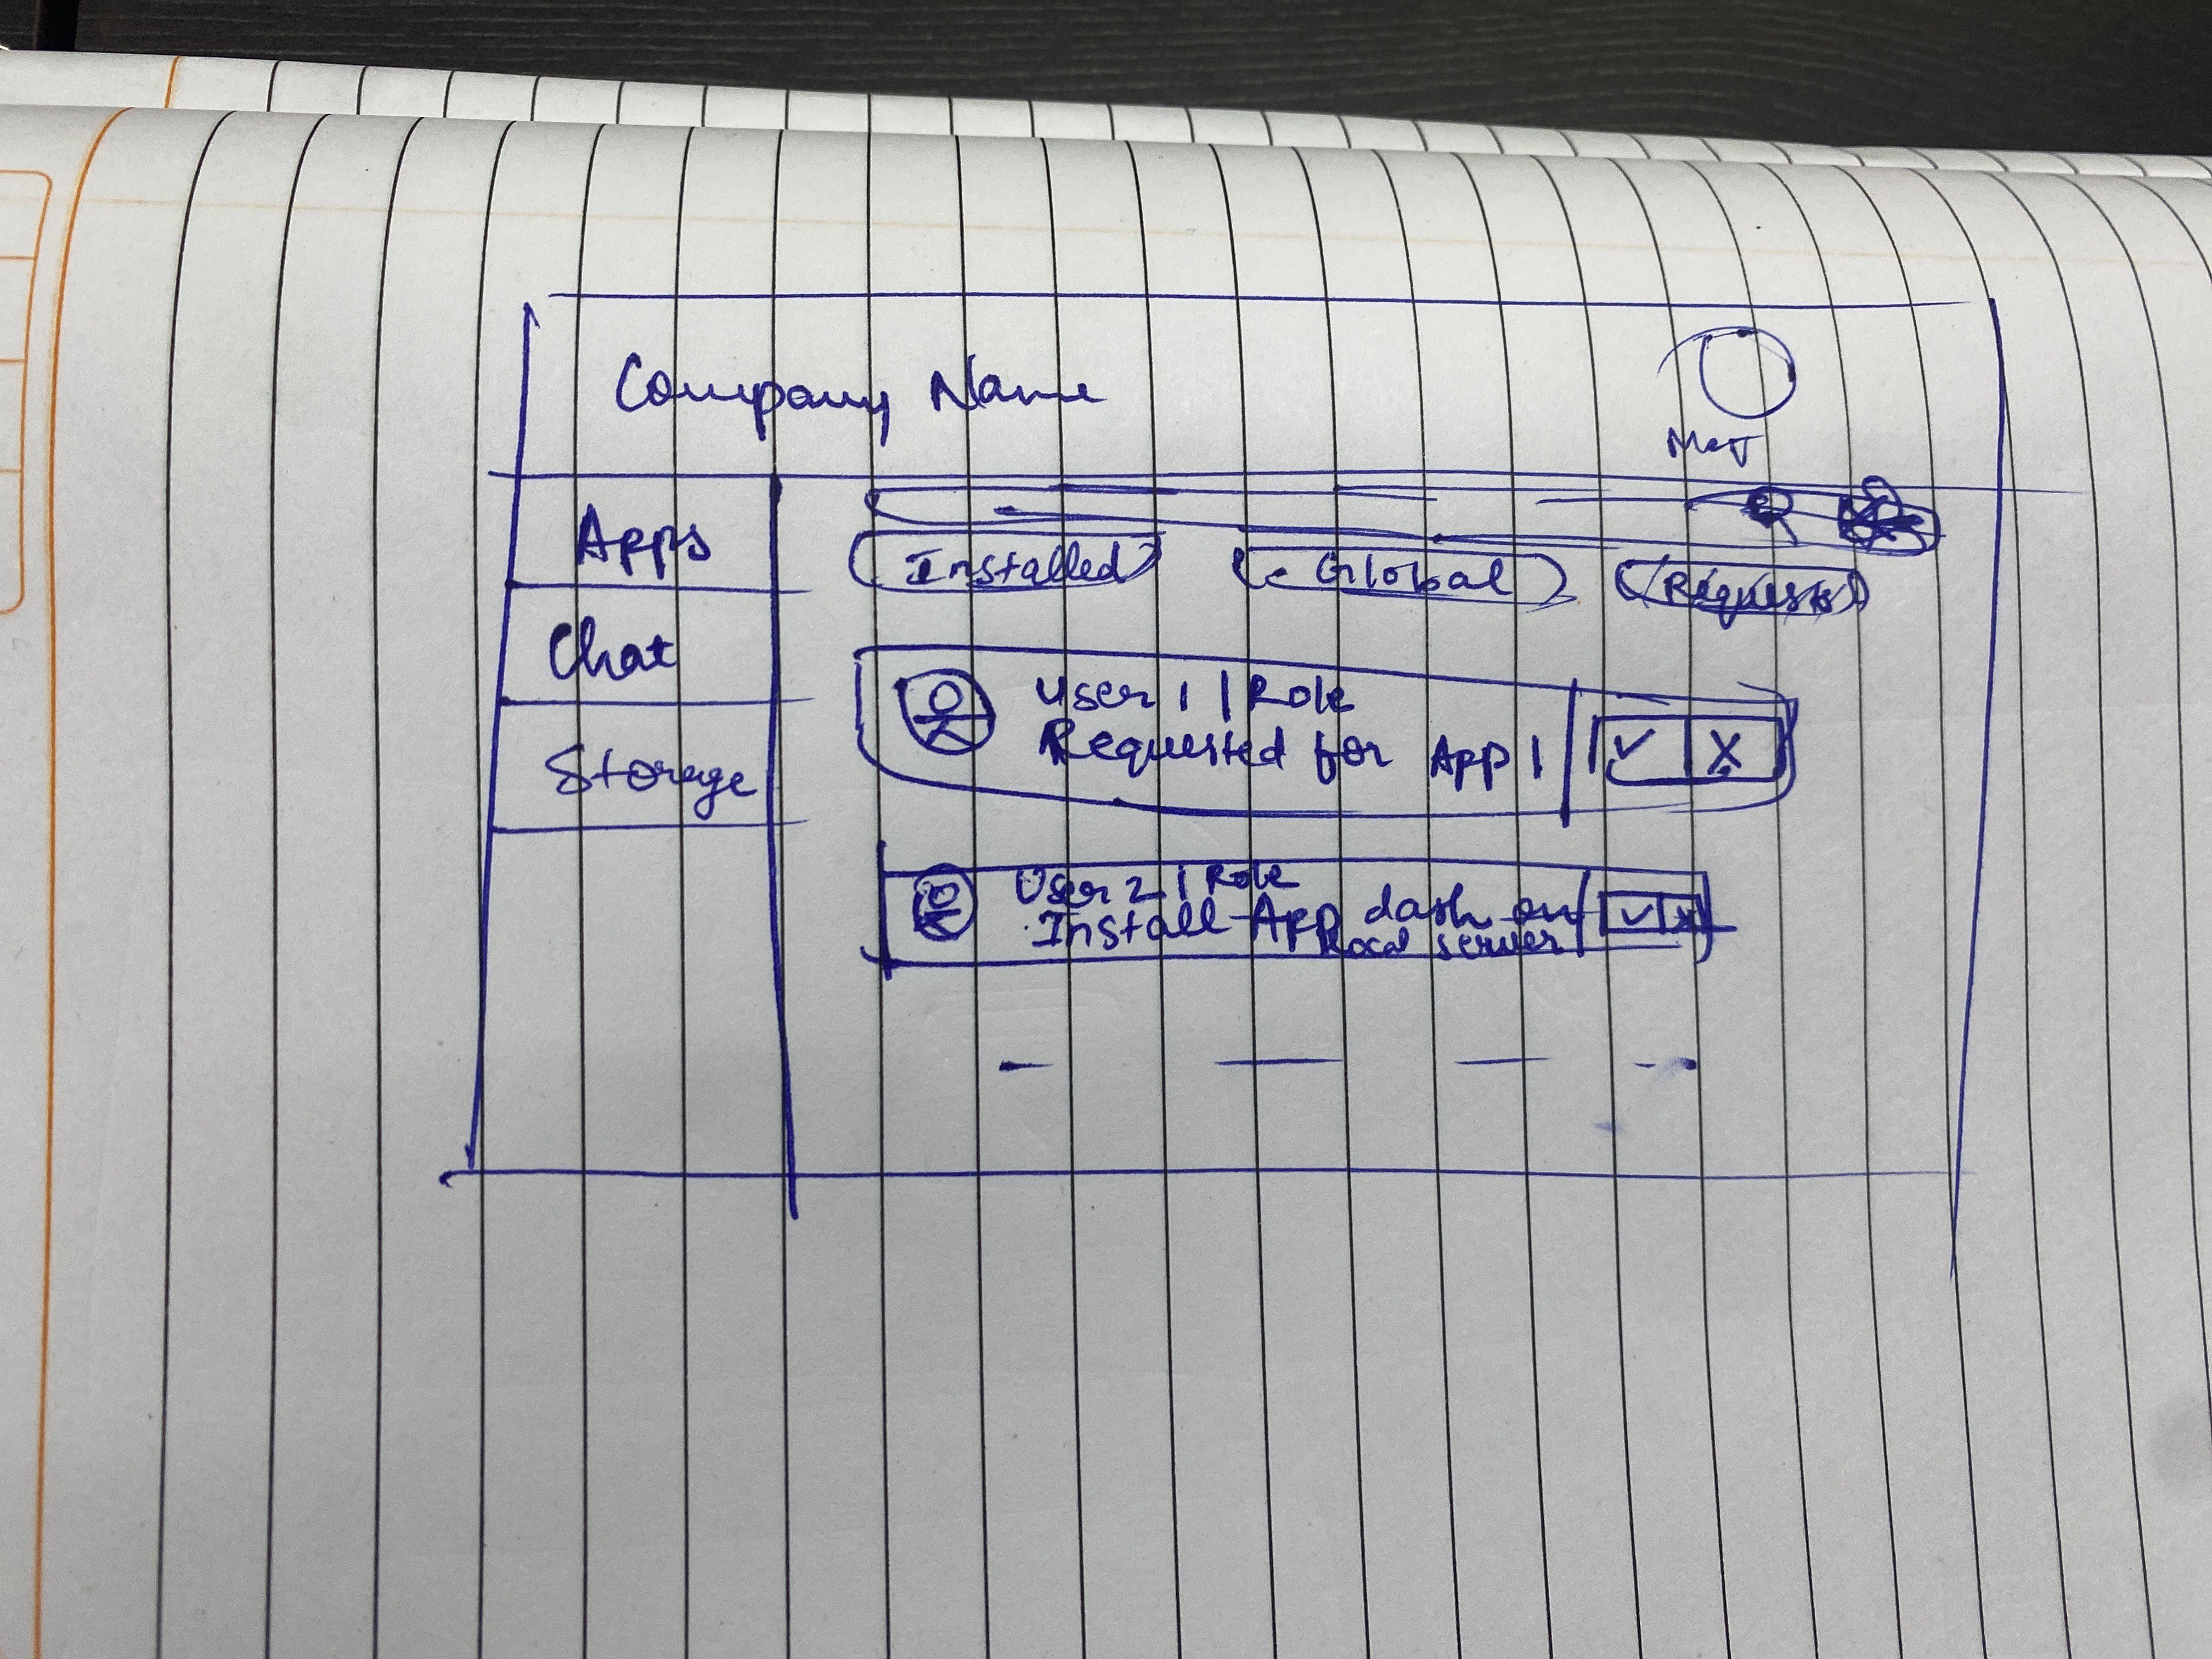 Company Name
Apps
Chat
Storage
Installed
Global
Requests
User 1 | Role
Requested for App 1
✓ X
User 2 | Role
Install App dash on
local server
✓ X